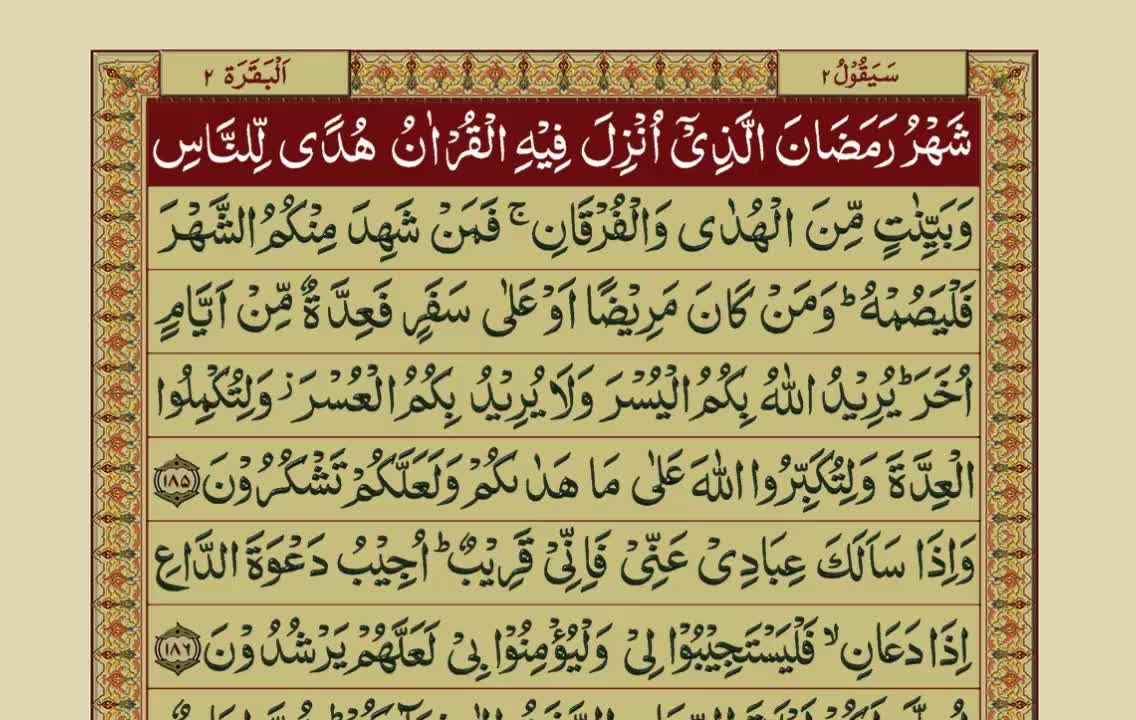 سَيَقُوْلُ ٢
اَلْبَقَرَة ٢
شَهْرُ رَمَضَانَ الَّذِیْۤ اُنْزِلَ فِیْهِ الْقُرْاٰنُ هُدًی لِّلنَّاسِ
وَ بَیِّنٰتٍ مِّنَ الْهُدٰی وَالْفُرْقَانِ ۚ فَمَنْ شَهِدَ مِنْكُمُ الشَّهْرَ
فَلْیَصُمْهُ ؕ وَمَنْ كَانَ مَرِیْضًا اَوْ عَلٰی سَفَرٍ فَعِدَّةٌ مِّنْ اَیَّامٍ
اُخَرَ ؕ یُرِیْدُ اللّٰهُ بِكُمُ الْیُسْرَ وَلَا یُرِیْدُ بِكُمُ الْعُسْرَ ز وَلِتُكْمِلُوا
الْعِدَّةَ وَلِتُكَبِّرُوا اللّٰهَ عَلٰی مَا هَدٰىكُمْ وَلَعَلَّكُمْ تَشْكُرُوْنَ ﴿١٨٥﴾
وَاِذَا سَاَلَكَ عِبَادِیْ عَنِّیْ فَاِنِّیْ قَرِیْبٌ ؕ اُجِیْبُ دَعْوَةَ الدَّاعِ
اِذَا دَعَانِ ۙ فَلْیَسْتَجِیْبُوْا لِیْ وَلْیُؤْمِنُوْا بِیْ لَعَلَّهُمْ یَرْشُدُوْنَ ﴿١٨٦﴾